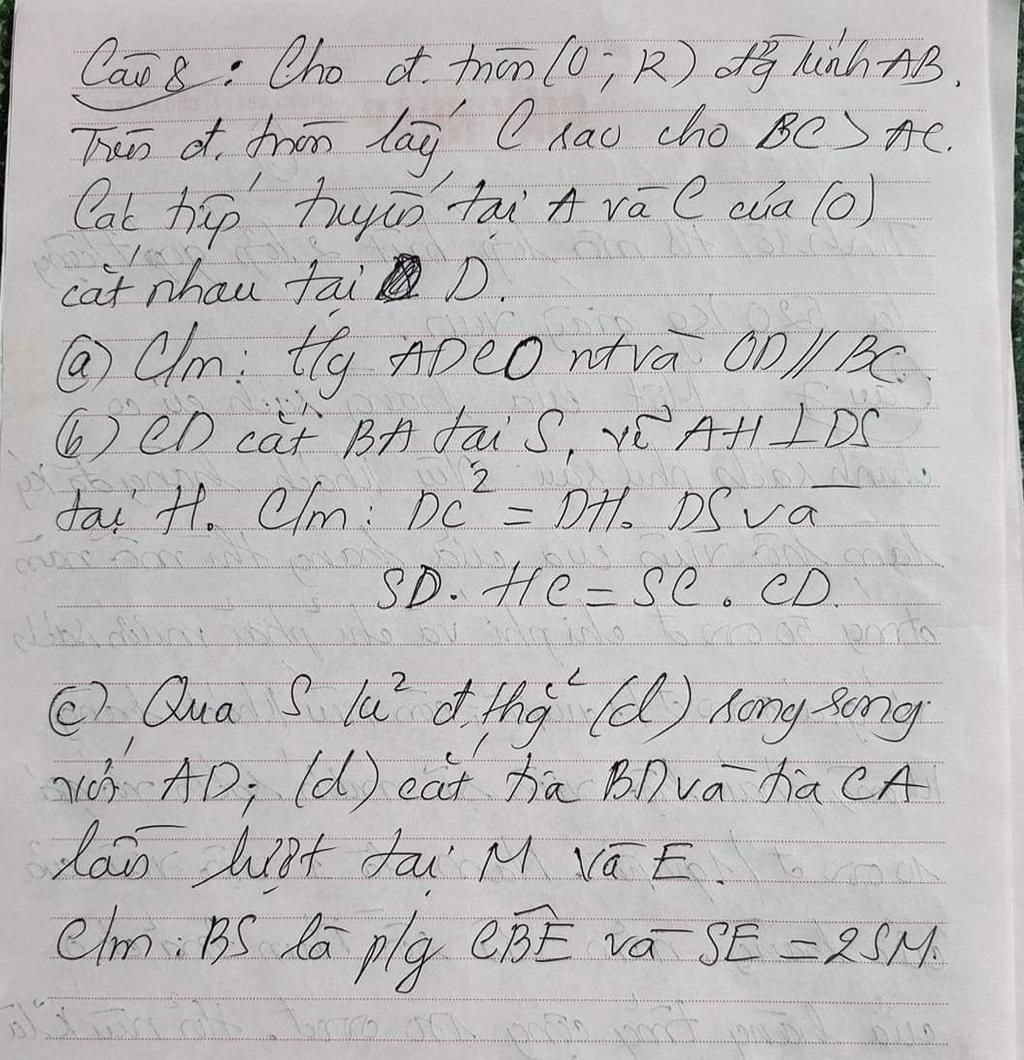 Câu 8: Cho đ. tròn (O; R) đg kính AB.
Trên đ. tròn lấy C sao cho BC > AC.
Các tiếp tuyến tại A và C của (O)
cắt nhau tại D.
(a) C/m: t/g ADCO nt và OD // BC.
(b) CD cắt BA tại S, vẽ AH ⊥ DS
tại H. C/m: DC² = DH. DS và
SD. HC = SC. CD.
(c) Qua S kẻ đ. thg (d) song song
với AD; (d) cắt tia BD và tia CA
lần lượt tại M và E.
C/m: BS là p/g CBE và SE = 2SM.